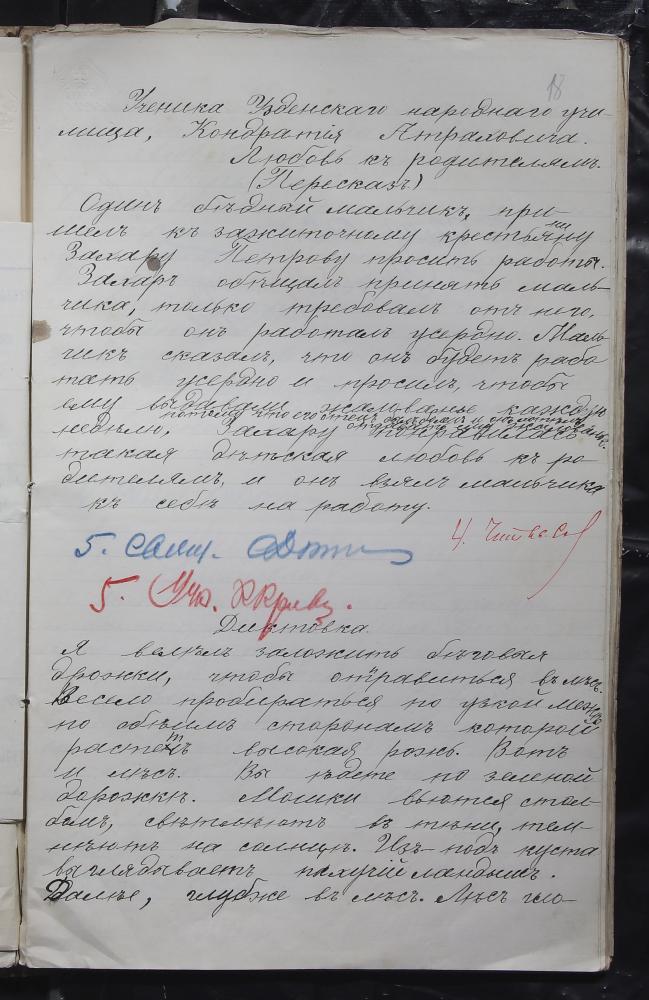 18
Ученика Узденскаго народнаго учи-
лища, Кондратья Атраховича.
Любовь къ родителямъ.
(Пересказъ)
Одинъ бѣдный мальчикъ, при-
шелъ къ зажиточному крестьянину
Захару Петрову просить работы.
Захаръ обѣщалъ принять маль-
чика, только требовалъ отъ него,
чтобы онъ работалъ усердно. Маль-
чикъ сказалъ, что онъ будетъ рабо
тать усердно и просилъ, чтобы
ему выдавали жалованье каждую
потому что его отецъ и
недѣлю, Захару понравилась
такая дѣтская любовь къ ро-
дителямъ, и онъ взялъ мальчика
къ себѣ на работу.
5.
4.
5. Уч.
Диктовка.
Я велѣлъ заложить бѣговыя
дрожки, чтобы отправиться въ лѣсъ.
Весело пробираться по узкой межѣ,
по обѣимъ сторонамъ которой
растетъ высокая рожь. Вотъ
и лѣсъ. Вы ѣдете по зеленой
дорожкѣ. Мошки вьются стол-
бомъ, свѣтлѣютъ въ тѣни, тем-
нѣютъ на солнцѣ. Изъ-подъ куста
выглядываетъ пахучій ландышъ.
Далѣе, глубже въ лѣсъ. Лѣсъ гло-